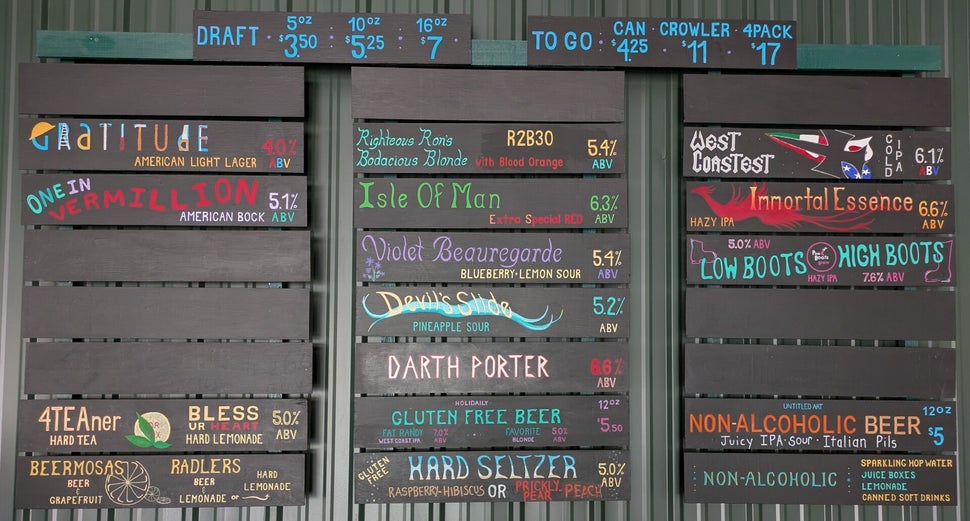 DRAFT · 5oz $3.50 · 10oz $5.25 · 16oz $7
TO GO · CAN $4.25 · CROWLER $11 · 4PACK $17
GRATITUDE 4.0%
AMERICAN LIGHT LAGER ABV
ONE IN VERMILLION 5.1%
AMERICAN BOCK ABV
4TEAner
HARD TEA
BLESS
UR HEART
HARD LEMONADE
5.0%
ABV
BEERMOSAS
BEER
&
GRAPEFRUIT
RADLERS
BEER
&
LEMONADE or
HARD
LEMONADE
Righteous Ron's
Bodacious Blonde
R2B30
with Blood Orange
5.4%
ABV
Isle Of Man 6.3%
Extra Special RED ABV
Violet Beauregarde 5.4%
BLUEBERRY·LEMON SOUR ABV
Devil's Slide 5.2%
PINEAPPLE SOUR ABV
DARTH PORTER 6.6%
ABV
HOLIDAILY
GLUTEN FREE BEER
FAT RANDY 7.0%
WEST COAST IPA ABV
FAVORITE 5.0%
BLONDE ABV
12oz
$5.50
GLUTEN
FREE
HARD SELTZER 5.0%
ABV
RASPBERRY-HIBISCUS OR PRICKLY
PEAR PEACH
WEST
COASTEST
COLD
IPA
6.1%
ABV
Immortal Essence 6.6%
HAZY IPA ABV
5.0% ABV
LOW BOOTS
HAZY IPA
HIGH BOOTS
7.6% ABV
UNTITLED ART
NON-ALCOHOLIC BEER
Juicy IPA·Sour·Italian Pils
12oz
$5
NON-ALCOHOLIC
SPARKLING HOP WATER
JUICE BOXES
LEMONADE
CANNED SOFT DRINKS